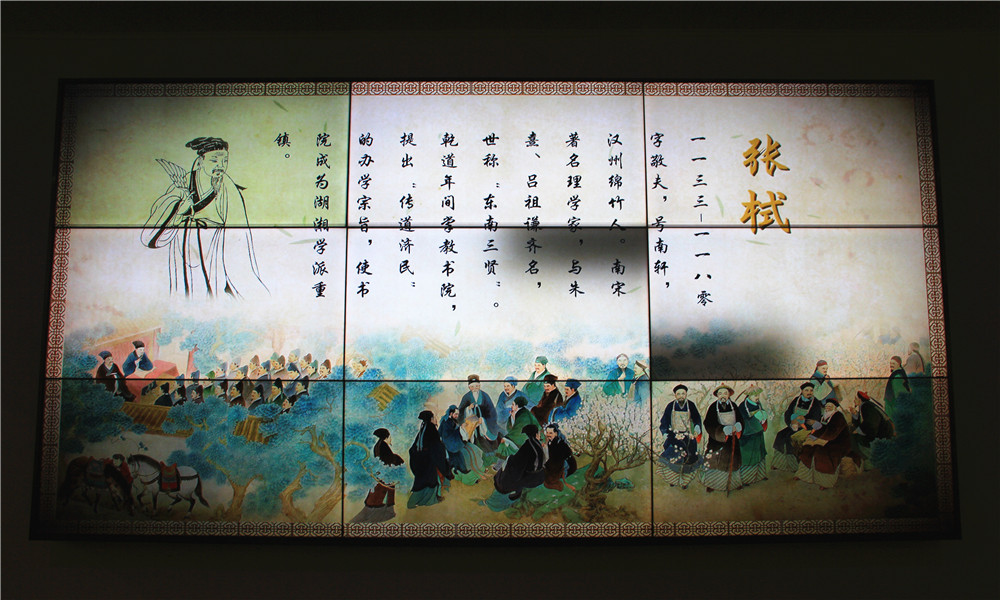 张栻
一一三三—一一八零
字敬夫，号南轩，
汉州绵竹人。南宋
著名理学家，与朱
熹、吕祖谦齐名，
世称“东南三贤”。
乾道年间掌教书院，
提出“传道济民”
的办学宗旨，使书
院成为湖湘学派重
镇。